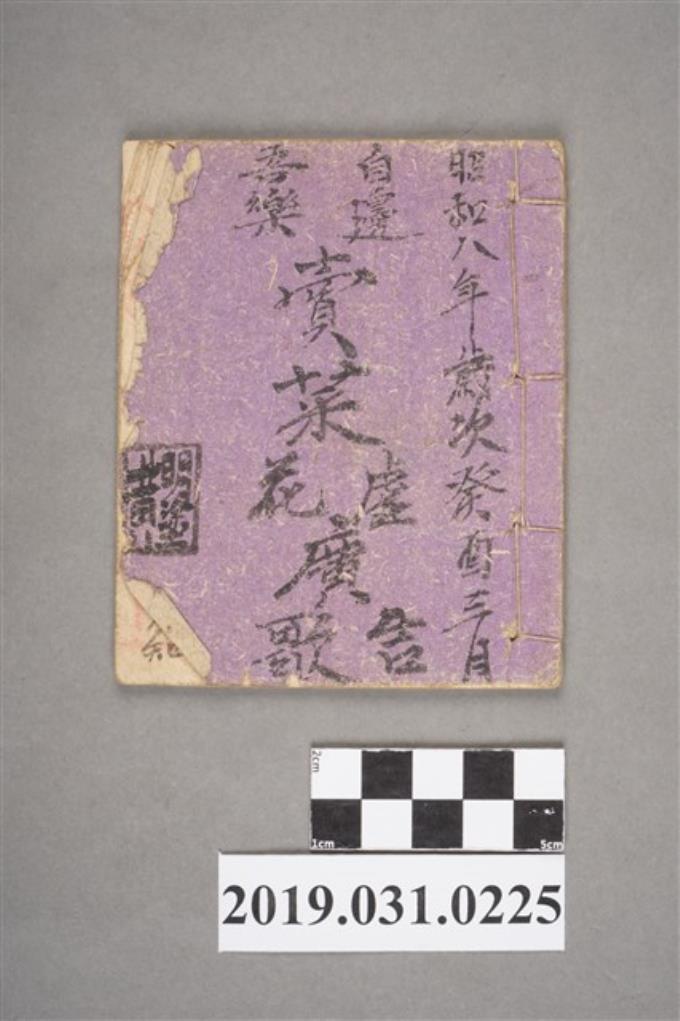 昭和八年歲次癸酉三月
自邊
吾樂
賣菜
花
廣
告
歌
明塗
黃
2cm
1cm
5cm
2019.031.0225